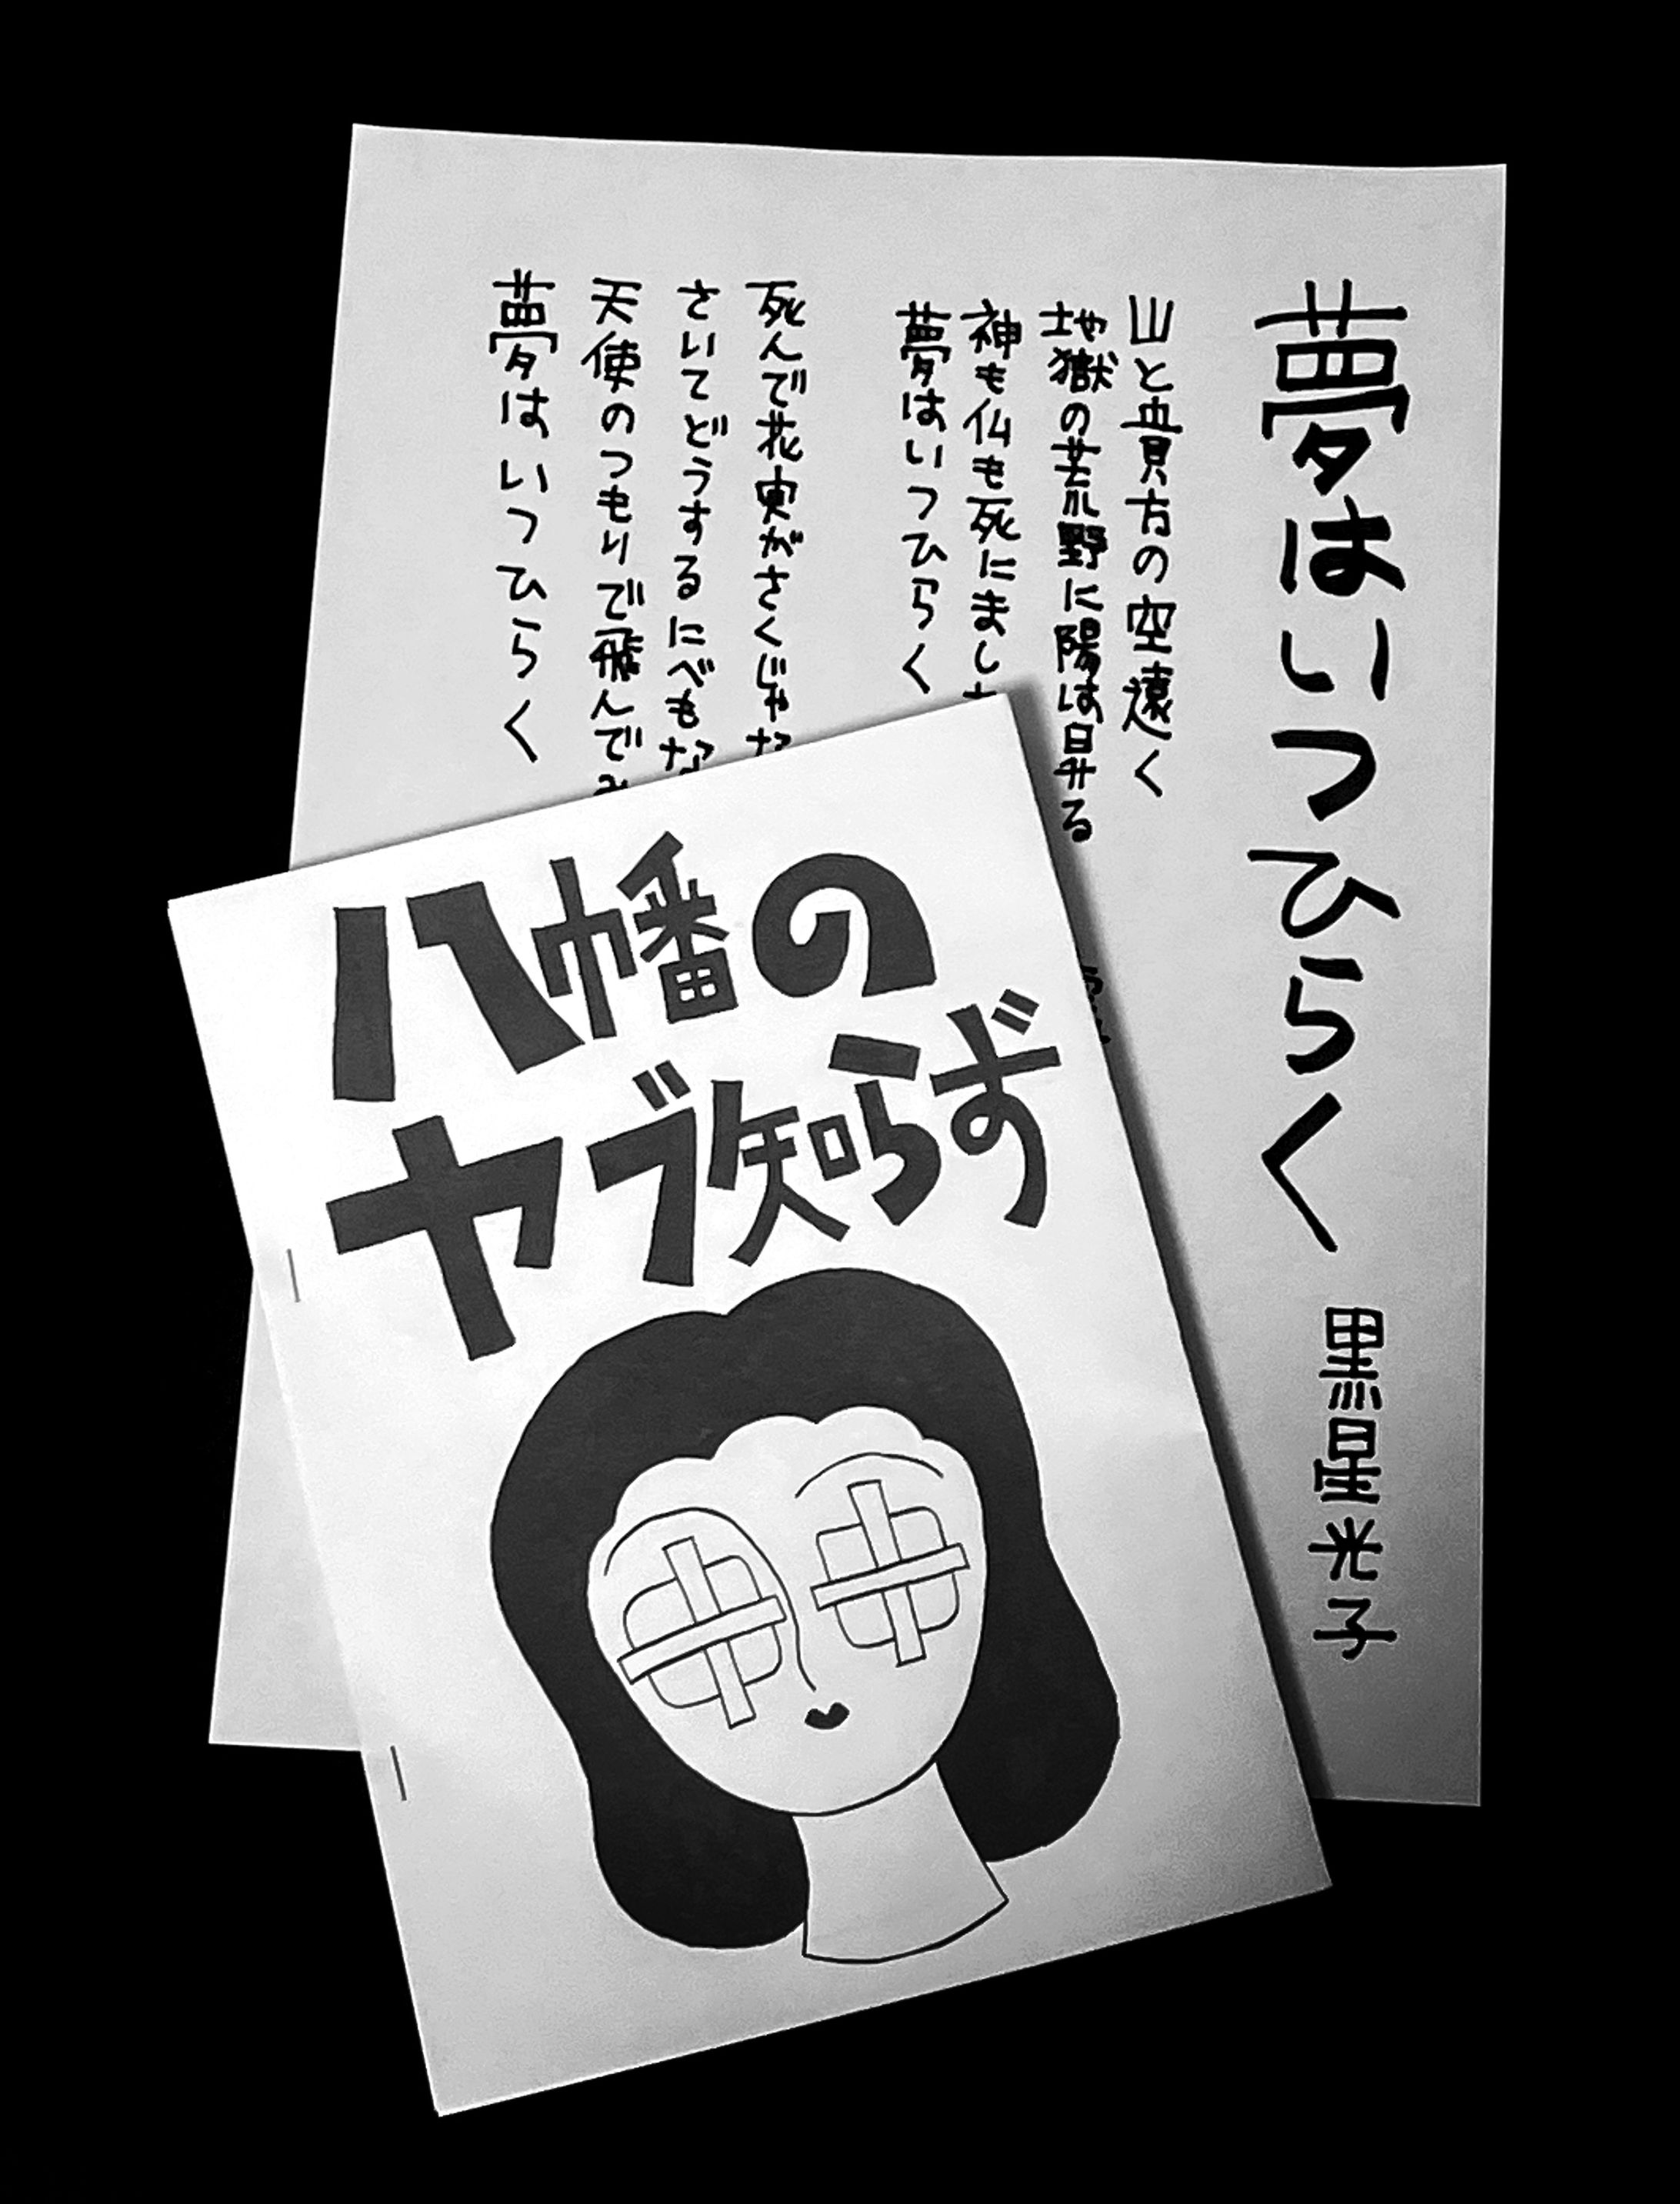 夢はいつひらく 黒星光子
山と貴方の空遠く
地獄の荒野に陽は昇る
神も仏も死にまし
夢はいつひらく
死んで花実がさくじゃな
さいてどうするにべもな
天使のつもりで飛んでみ
夢はいつひらく
八幡の
ヤブ知らず